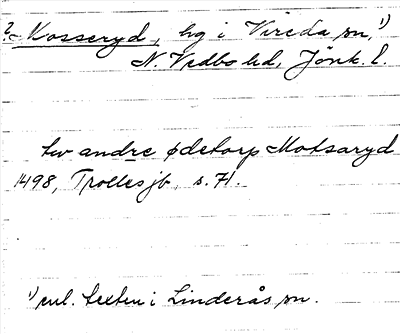 ? Mosseryd, hg i Vireda sn, 1)
N. Vedbo hd, Jönk. l.
tw andre ødetorp Motsaryd
1498, Trolles jb, s. 71.
1) enl. texten i Linderås sn.